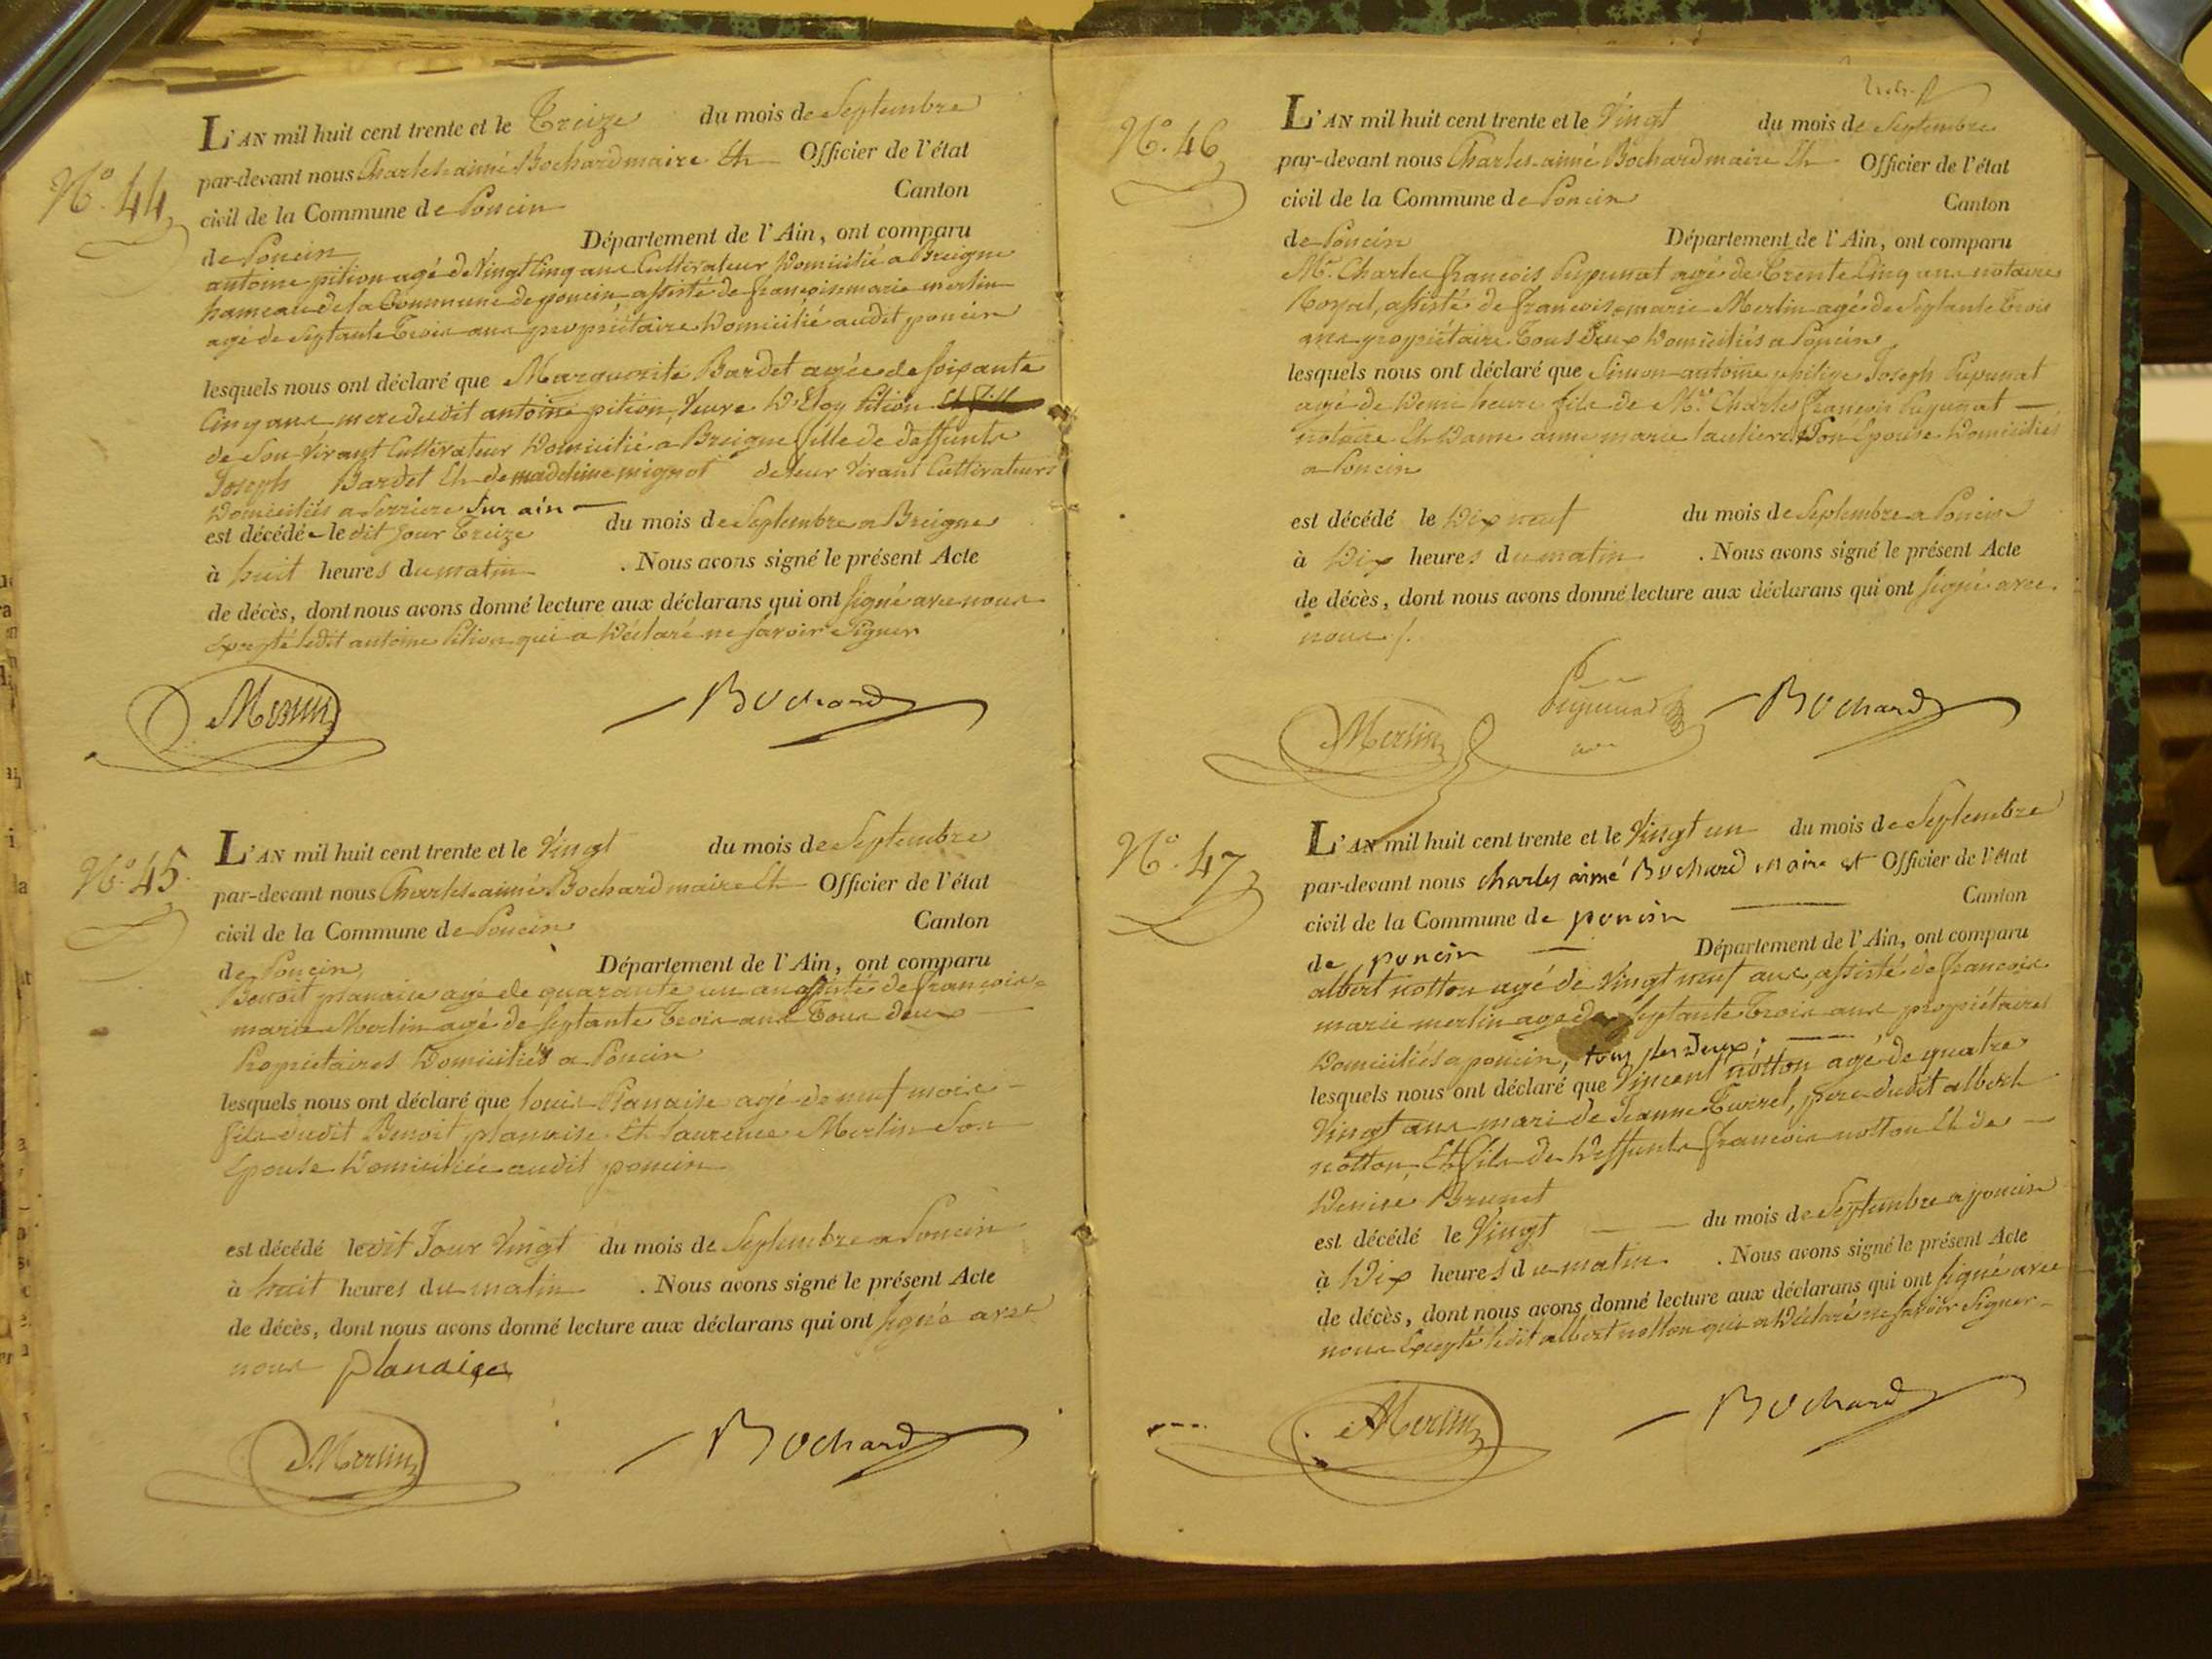 N.° 44
L'AN mil huit cent trente et le Treize du mois de Septembre
par-devant nous Charles aimé Bochard maire Et Officier de l'état
civil de la Commune de Poncin Canton
de Poncin Département de l'Ain, ont comparu
antoine pition agé de Vingt Cinq ans Cultivateur Domicilié a Breigne
hameau de la Commune de poncin, assisté de françois marie merlin
agé de Septante Trois ans propriétaire Domicilié audit poncin
lesquels nous ont déclaré que Marguerite Bardet agée de soixante
Cinq ans, mere dudit antoine pition, Veuve D'Eloy Pition
de Son Vivant Cultivateur Domicilié a Breigne fille de deffunts
Joseph Bardet Et de madeleine mignot de leur Vivant Cultivateurs
Domiciliés a Serriere Sur ain
est décédée le dit Jour Treize du mois de Septembre a Breigne
à huit heures du matin . Nous avons signé le présent Acte
de décès, dont nous avons donné lecture aux déclarans qui ont signé avec nous
Excepté ledit antoine Pition qui a Déclaré ne savoir Signer
Merlin Bochard
N.° 45.
L'AN mil huit cent trente et le Vingt du mois de Septembre
par-devant nous Charles aimé Bochard maire Et Officier de l'état
civil de la Commune de Poncin Canton
de Poncin Département de l'Ain, ont comparu
Benoit planaise agé de quarante un an assisté de françois
marie Merlin agé de Septante Trois ans Tous deux
Propriétaires Domiciliés a Poncin
lesquels nous ont déclaré que Louis Planaise agé de neuf mois
fils dudit Benoit planaise Et Laurence Merlin Son
Epouse Domiciliée audit poncin
est décédé ledit Jour Vingt du mois de Septembre a Poncin
à huit heures du matin . Nous avons signé le présent Acte
de décès, dont nous avons donné lecture aux déclarans qui ont signé avec
nous planaise
Merlin Bochard
N.° 46
L'AN mil huit cent trente et le Vingt du mois de Septembre
par-devant nous Charles aimé Bochard maire Et Officier de l'état
civil de la Commune de Poncin Canton
de Poncin Département de l'Ain, ont comparu
Mr. Charles françois Pupunat agé de Trente Cinq ans notaire
Royal, assisté de françois marie Merlin agé de Septante Trois
ans propriétaire Tous Deux Domiciliés a Poncin
lesquels nous ont déclaré que Simon antoine philipe Joseph Pupunat
agé de Demi heure fils de Mr. Charles françois Pupunat
notaire Et Dame anne marie Son Epouse Domiciliés
a Poncin
est décédé le Dix neuf du mois de Septembre a Poncin
à Dix heures du matin . Nous avons signé le présent Acte
de décès, dont nous avons donné lecture aux déclarans qui ont signé avec
nous /.
Merlin Pupunat Bochard
N.° 47
L'AN mil huit cent trente et le Vingt un du mois de Septembre
par-devant nous charles aimé Bochard maire et Officier de l'état
civil de la Commune de poncin Canton
de poncin Département de l'Ain, ont comparu
albert notton agé de Vingt neuf ans, assisté de francois
marie merlin agé de Septante Trois ans propriétaires
Domiciliés a poncin, tous les deux;
lesquels nous ont déclaré que Vincent notton agé de quatre
Vingt ans mari de Jeanne Turrel, pere dudit albert
notton Et fils de Deffunts francois notton Et de
Denise Brunet
est décédé le Vingt du mois de Septembre a poncin
à Dix heures du matin . Nous avons signé le présent Acte
de décès, dont nous avons donné lecture aux déclarans qui ont signé avec
nous Excepté ledit albert notton qui a Déclaré ne savoir Signer
Merlin Bochard